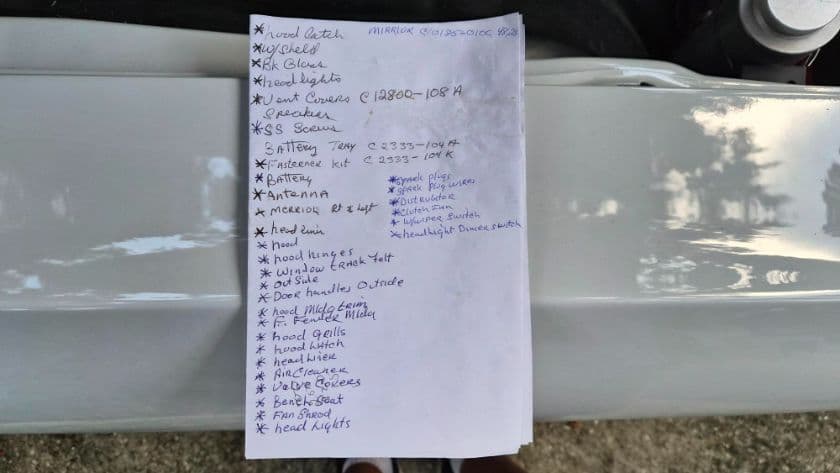 * hood Catch
MIRRIOR
* W/Sheld
* Bk Glass
* headlights
* Vent Covers C12800-108A
Speakers
* SS Screws
BATTERY TRAY C2333-104A
* FASTERNER KIT C 2333-104K
* BATTERY
* Antenna
* MERRIOR Rt & Left
* head
* hood
* hood hinges
* Window tRACK Felt
* outside
* Door handles Outside
* hood Mldg trim
* F. Fender Mldg
* hood Grills
* hood Latch
* head Liner
* Air Cleaner
* Valve Covers
* Bench Seat
* FAN Shrod
* head Lights
* Spark plugs
* Spark plug wires
* Distrubtor
* Clutch Fan
* Whisper Switch
* headlight Dimer Switch